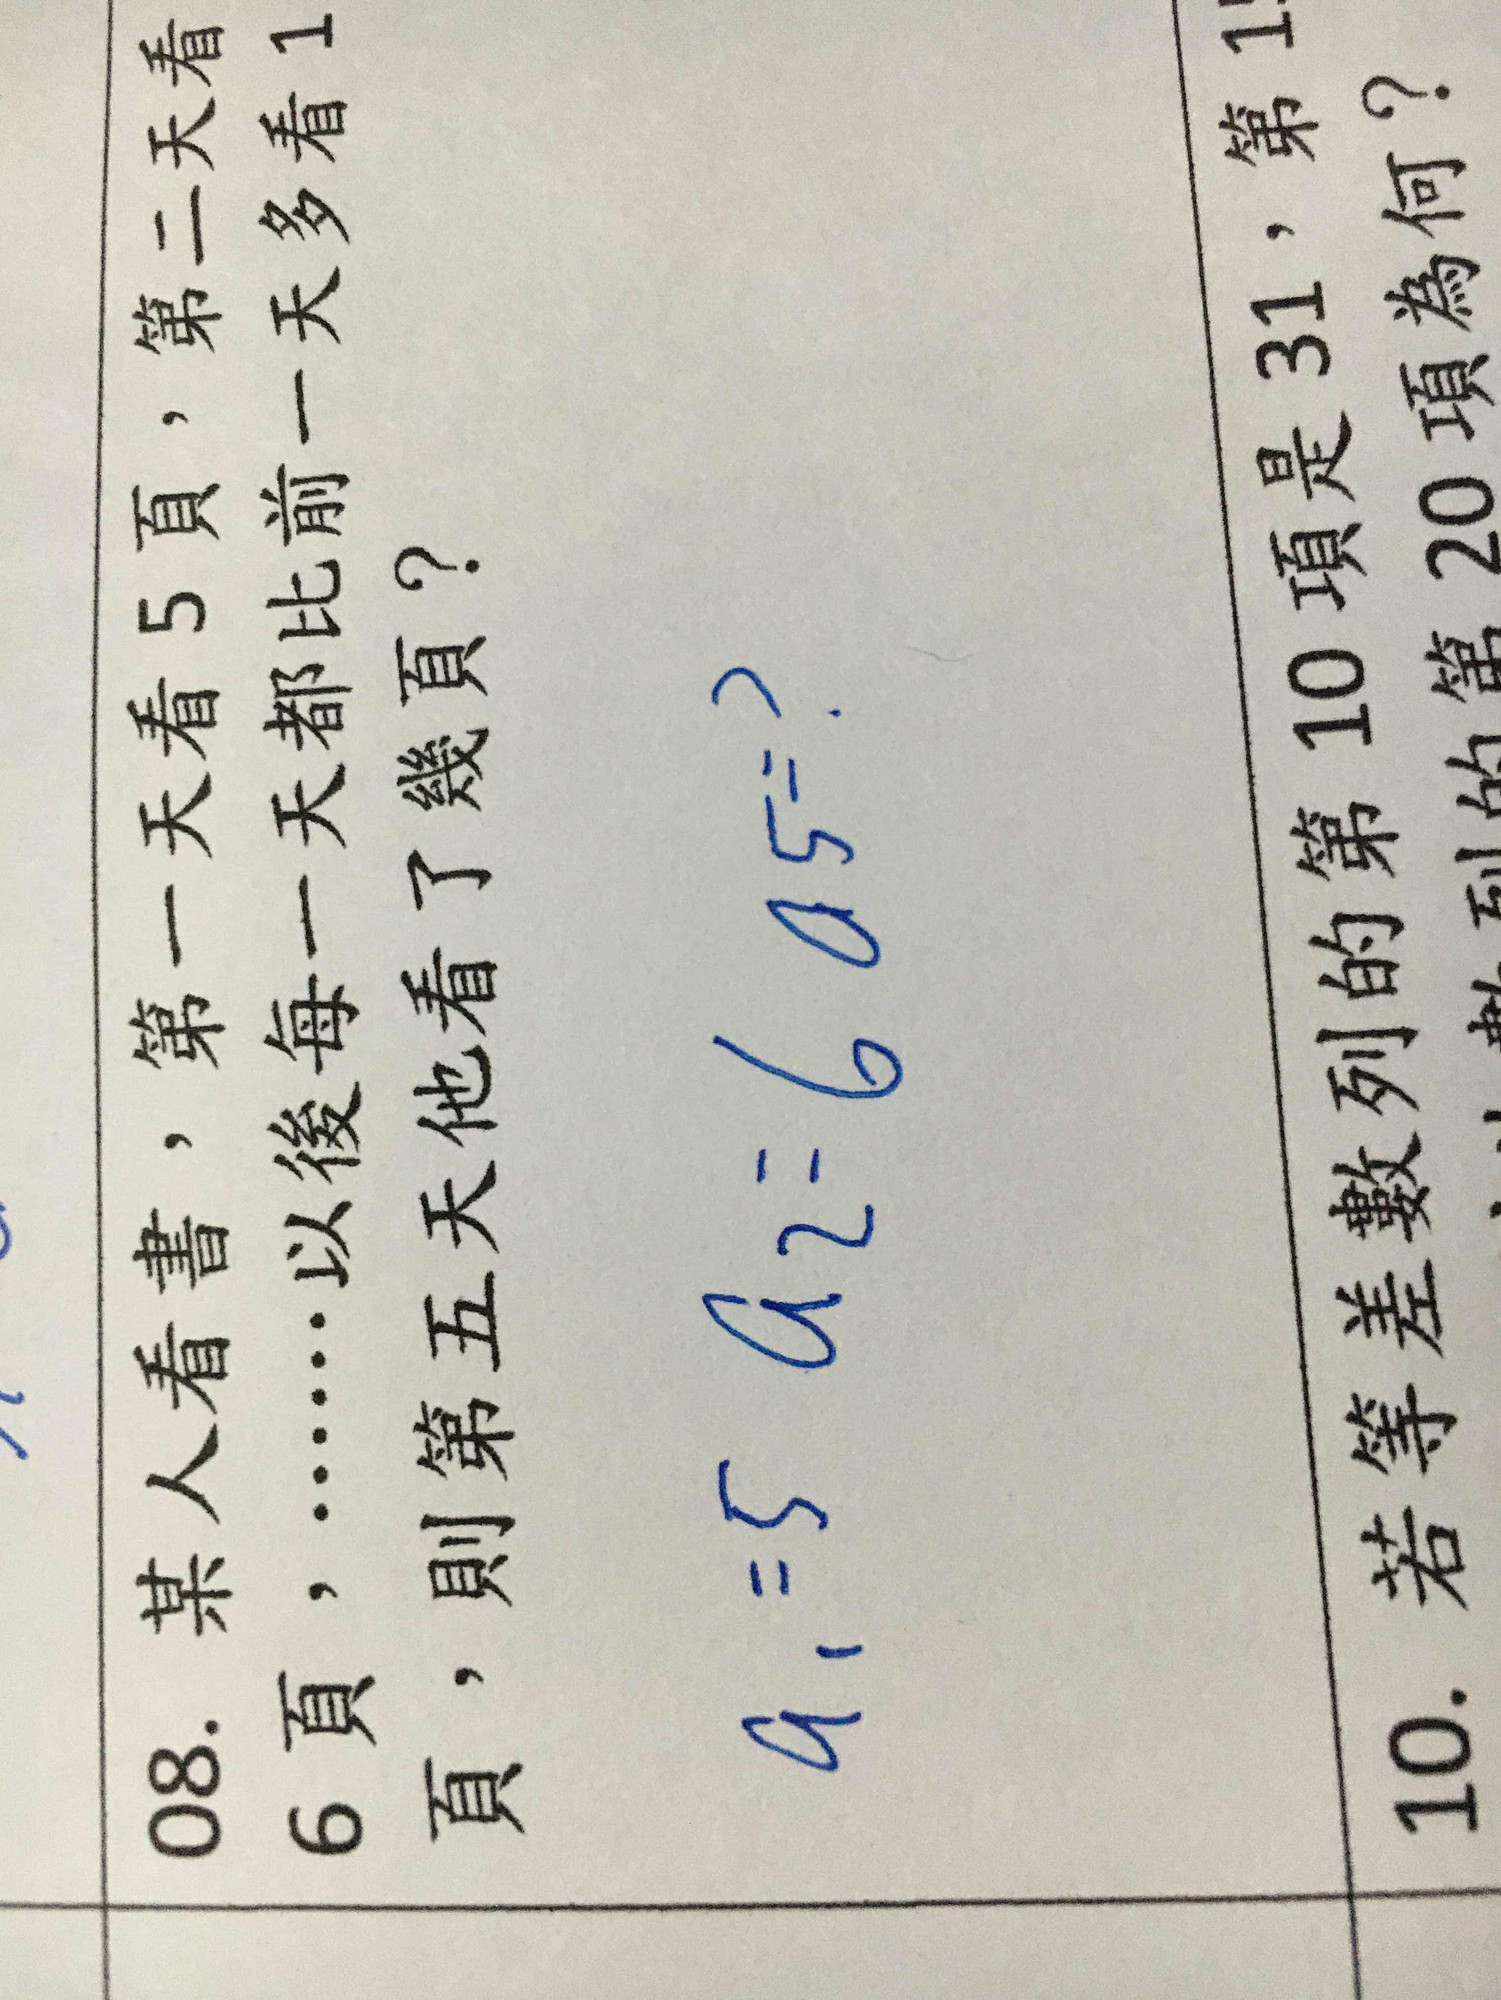 08. 某人看書，第一天看 5 頁，第二天看
6 頁，……以後每一天都比前一天多看 1
頁，則第五天他看了幾頁？
a1=5 a2=6 a5=?
10. 若等差數列的第 10 項是 31，第
數列的第 20 項為何？